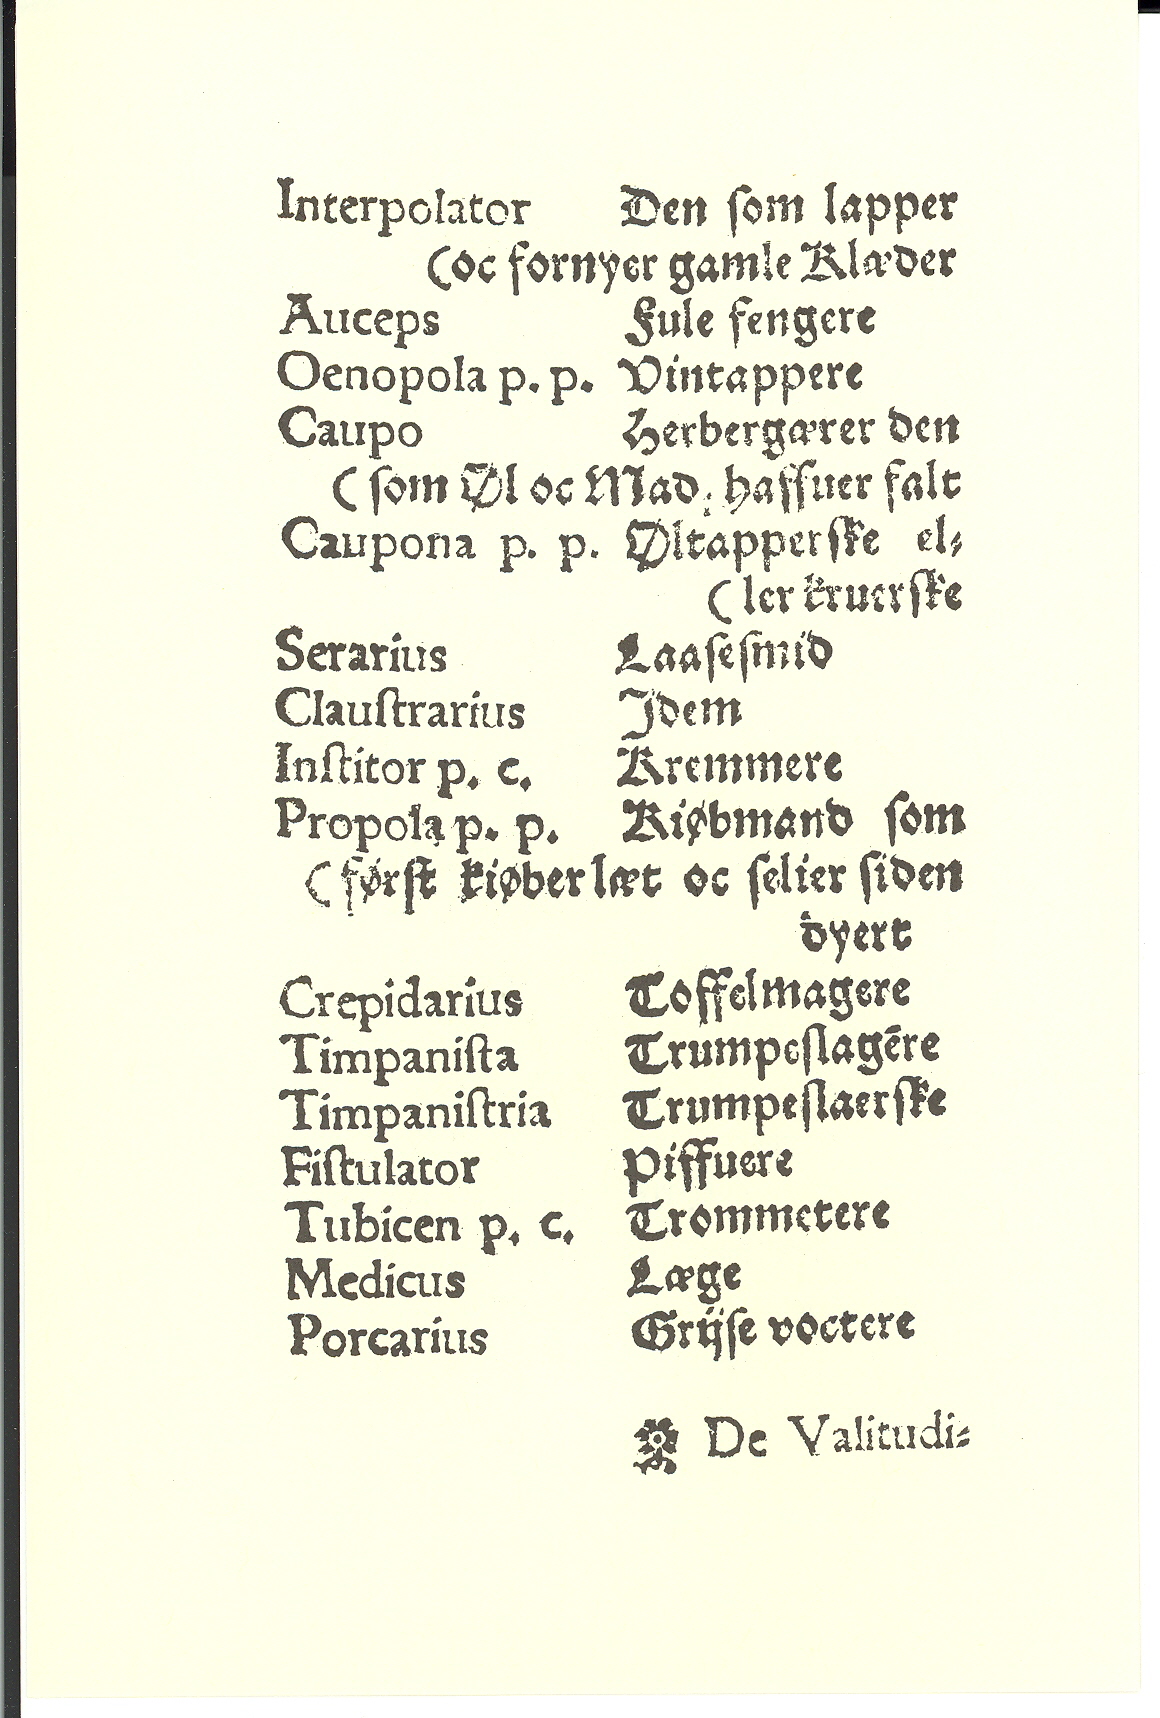 Interpolator Den ſom lapper
(oc fornyer gamle Klæder
Auceps Fule fengere
Oenopola p. p. Vintappere
Caupo Herbergærer den
(ſom Øl oc Mad, haffuer falt
Caupona p. p. Øltapperſke el⸗
(ler kruerſke
Serarius Laaſeſmid
Clauſtrarius Idem
Inſtitor p. c. Kremmere
Propola p. p. Kiøbmand ſom
(førſt kiøber læt oc ſelier ſiden
dyert
Crepidarius Toffelmagere
Timpaniſta Trumpeſlagēre
Timpaniſtria Trumpeſlaerſke
Fiſtulator Piffuere
Tubicen p. c. Trommetere
Medicus Læge
Porcarius Grijſe voctere
De Valitudi⸗